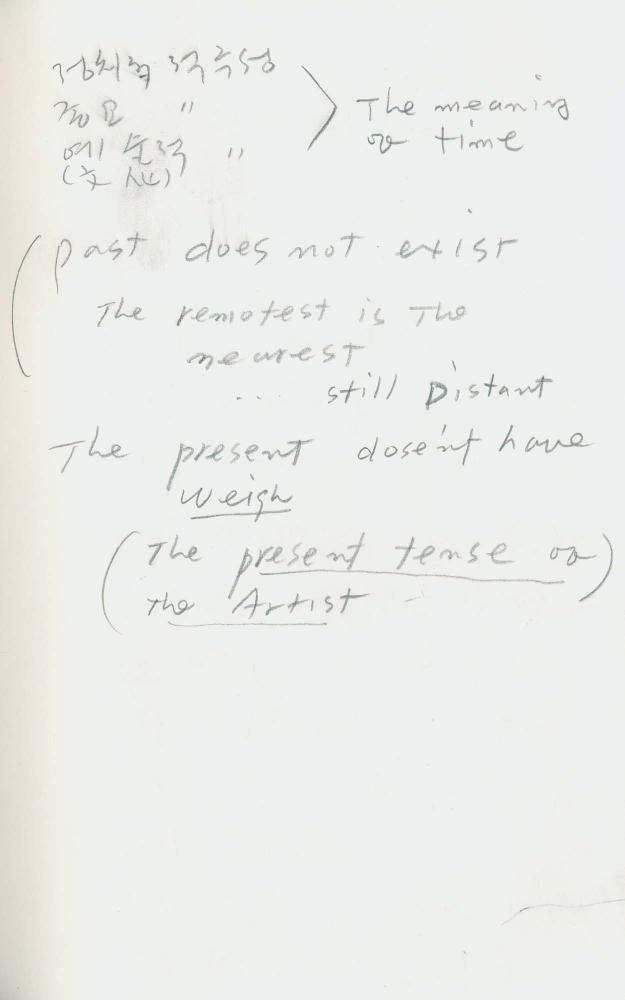 정치적 극수성
중요 "
예술적 "
(文 似)
The meaning
of time
(past does not exist
The remotest is The
nearest
... still Distant
The present dose'nt have
weigh
(The present tense of)
The Artist